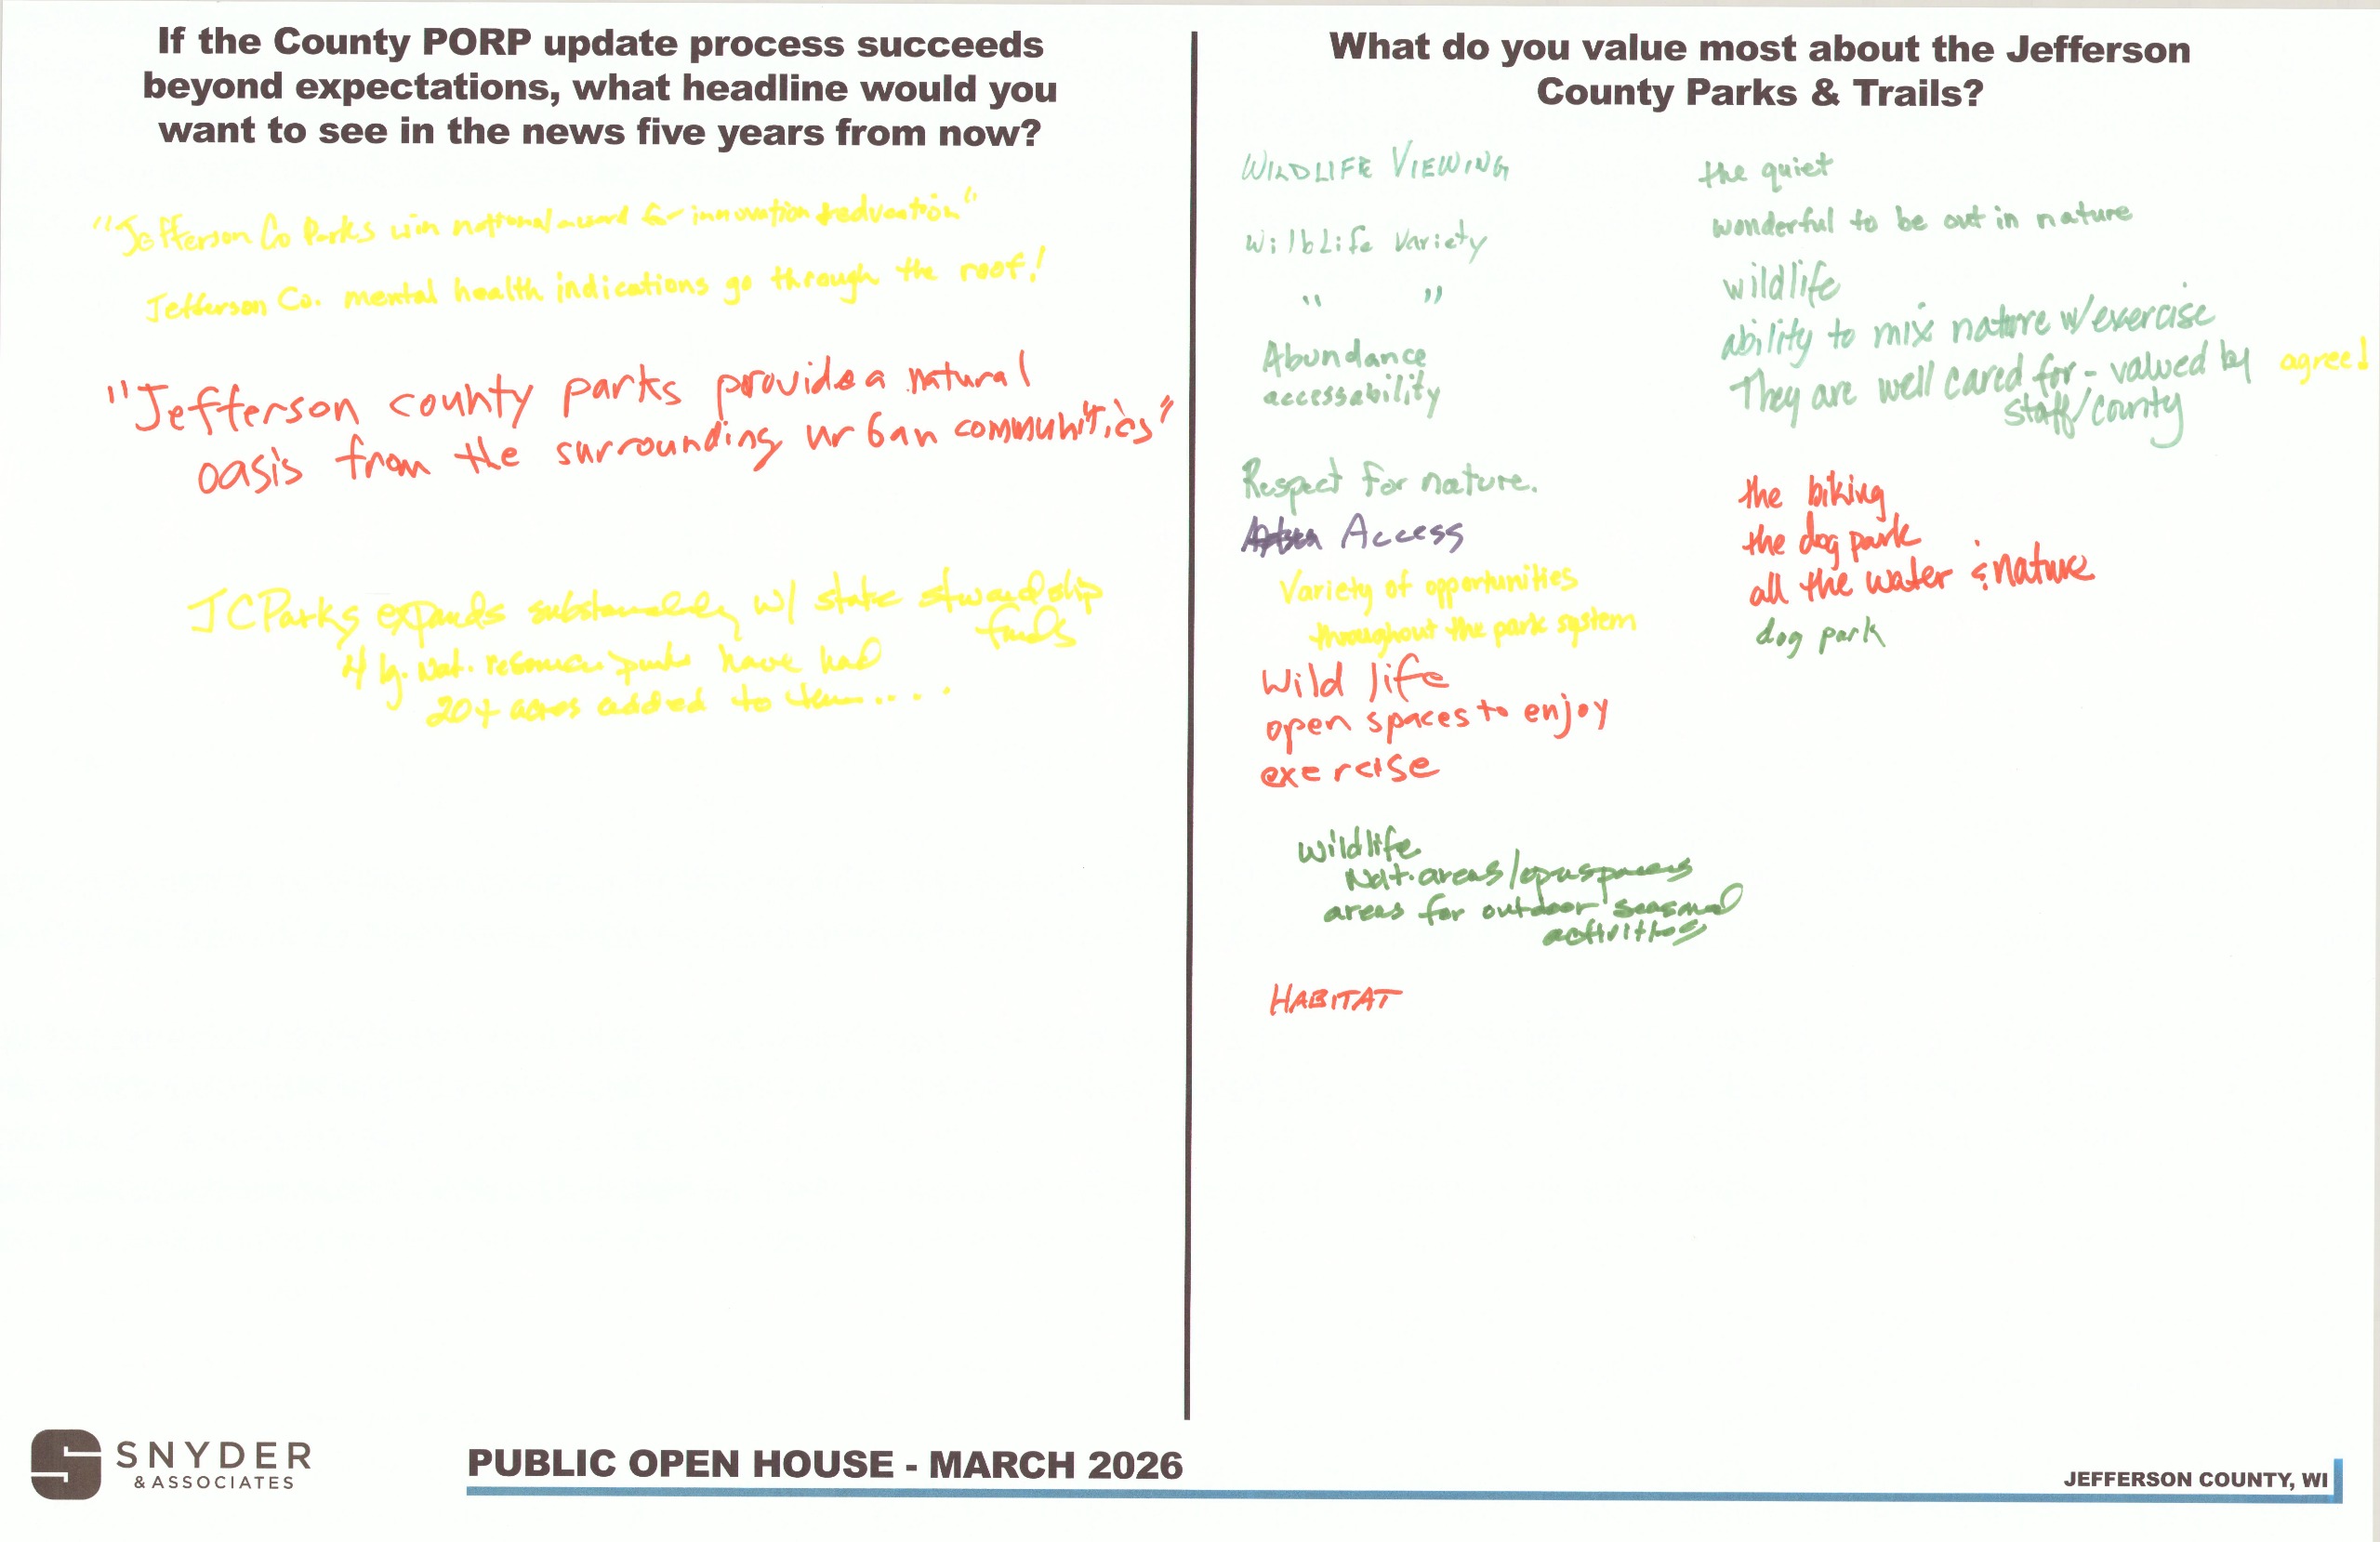 If the County PORP update process succeeds
beyond expectations, what headline would you
want to see in the news five years from now?
"Jefferson Co Parks win national award for innovation & education"
Jefferson Co. mental health indications go through the roof!
"Jefferson county parks provide a natural
oasis from the surrounding urban communities"
JCParks expands substantially w/ state stewardship
funds
4 lg. Nat. resource parks have had
20+ acres added to them....
What do you value most about the Jefferson
County Parks & Trails?
WILDLIFE VIEWING
WilbLife Variety
" "
Abundance
accessability
Respect for nature.
Access
Variety of opportunities
throughout the park system
Wild life
open spaces to enjoy
exercise
Wildlife
Nat. areas/open spaces
areas for outdoor seasonal
activities
HABITAT
the quiet
wonderful to be out in nature
wildlife
ability to mix nature w/exercise
They are well cared for - valued by agree!
staff/county
the biking
the dog park
all the water & nature
dog park
SNYDER
& ASSOCIATES
PUBLIC OPEN HOUSE - MARCH 2026
JEFFERSON COUNTY, WI